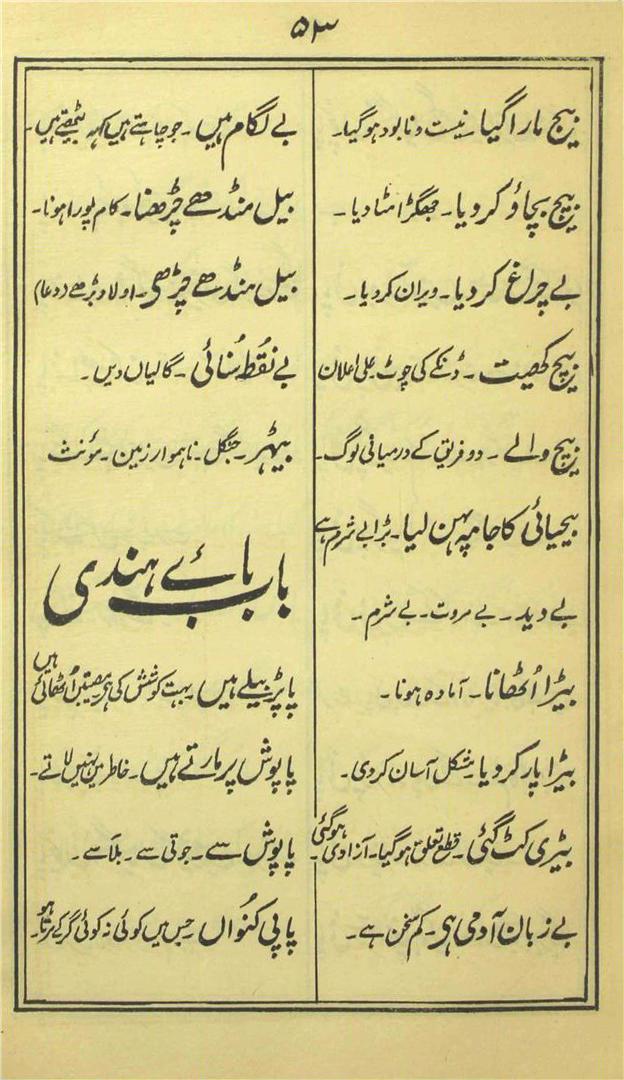 ۵۳
بیچ مارا گیا۔ نیست و نابود ہو گیا۔
بیچ بچاؤ کر دیا۔ جھگڑا مٹا دیا۔
بے چراغ کر دیا۔ ویران کر دیا۔
بیچ کھیت۔ ڈنکے کی چوٹ۔ علی اعلان
بیچ والے۔ دو فریق کے درمیانی لوگ۔
بیحیائی کا جامہ پہن لیا۔ بڑا بے شرم ہے
بے دید۔ بے مروت۔ بے شرم۔
بیڑا اُٹھانا۔ آمادہ ہونا۔
بیڑا پار کر دیا۔ مشکل آسان کر دی۔
بیڑی کٹ گئی۔ قطع تعلق ہو گیا۔ آزادی ہو گئی۔
بے زبان آدمی ہی۔ کم سخن ہے۔
بے لگام ہیں۔ جو چاہتے ہیں کہہ بیٹھتے ہیں۔
بیل منڈھے چڑھنا۔ کام پورا ہونا۔
بیل منڈھے چڑھی۔ اولاد بڑھے (دعا)
بے نُقط سُنائی۔ گالیاں دیں۔
بیہڑ۔ جنگل۔ ناہموار زمین۔ مؤنث
باب بائے ہندی
پاپڑ بیلے ہیں بہت کوشش کی ہی مصیبتیں اُٹھائی ہیں
پاپوش پر مارتے ہیں۔ خاطر میں نہیں لاتے۔
پاپوش سے۔ جوتی سے۔ بلا سے۔
پاپی کنُواں جس میں کوئی نہ کوئی گر کے مرتا ہو